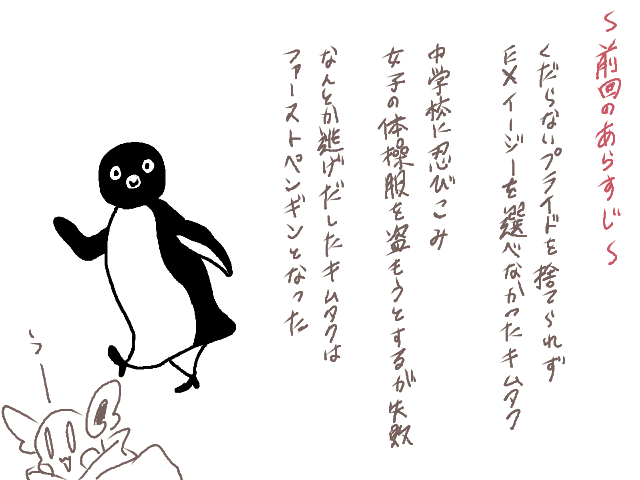 ～前回のあらすじ～
くだらないプライドを捨てられず
EXイージーを選べなかったキムタク
中学校に忍びこみ
女子の体操服を盗もうとするが失敗
なんとか逃げだしたキムタクは
ファーストペンギンとなった